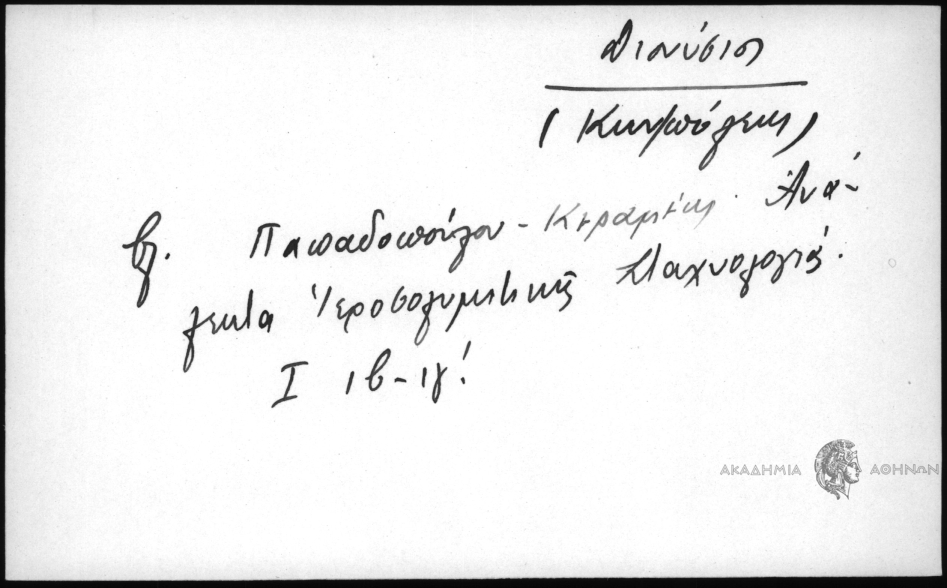 Διονύσιος
(Κων/πόλεως)
βλ. Παπαδοπούλου - Κεραμέως. Ἀνά-
λεκτα Ἱεροσολυμιτικῆς Σταχυολογίας.
I ιβ-ιγ!
ΑΚΑΔΗΜΙΑ ΑΘΗΝΩΝ